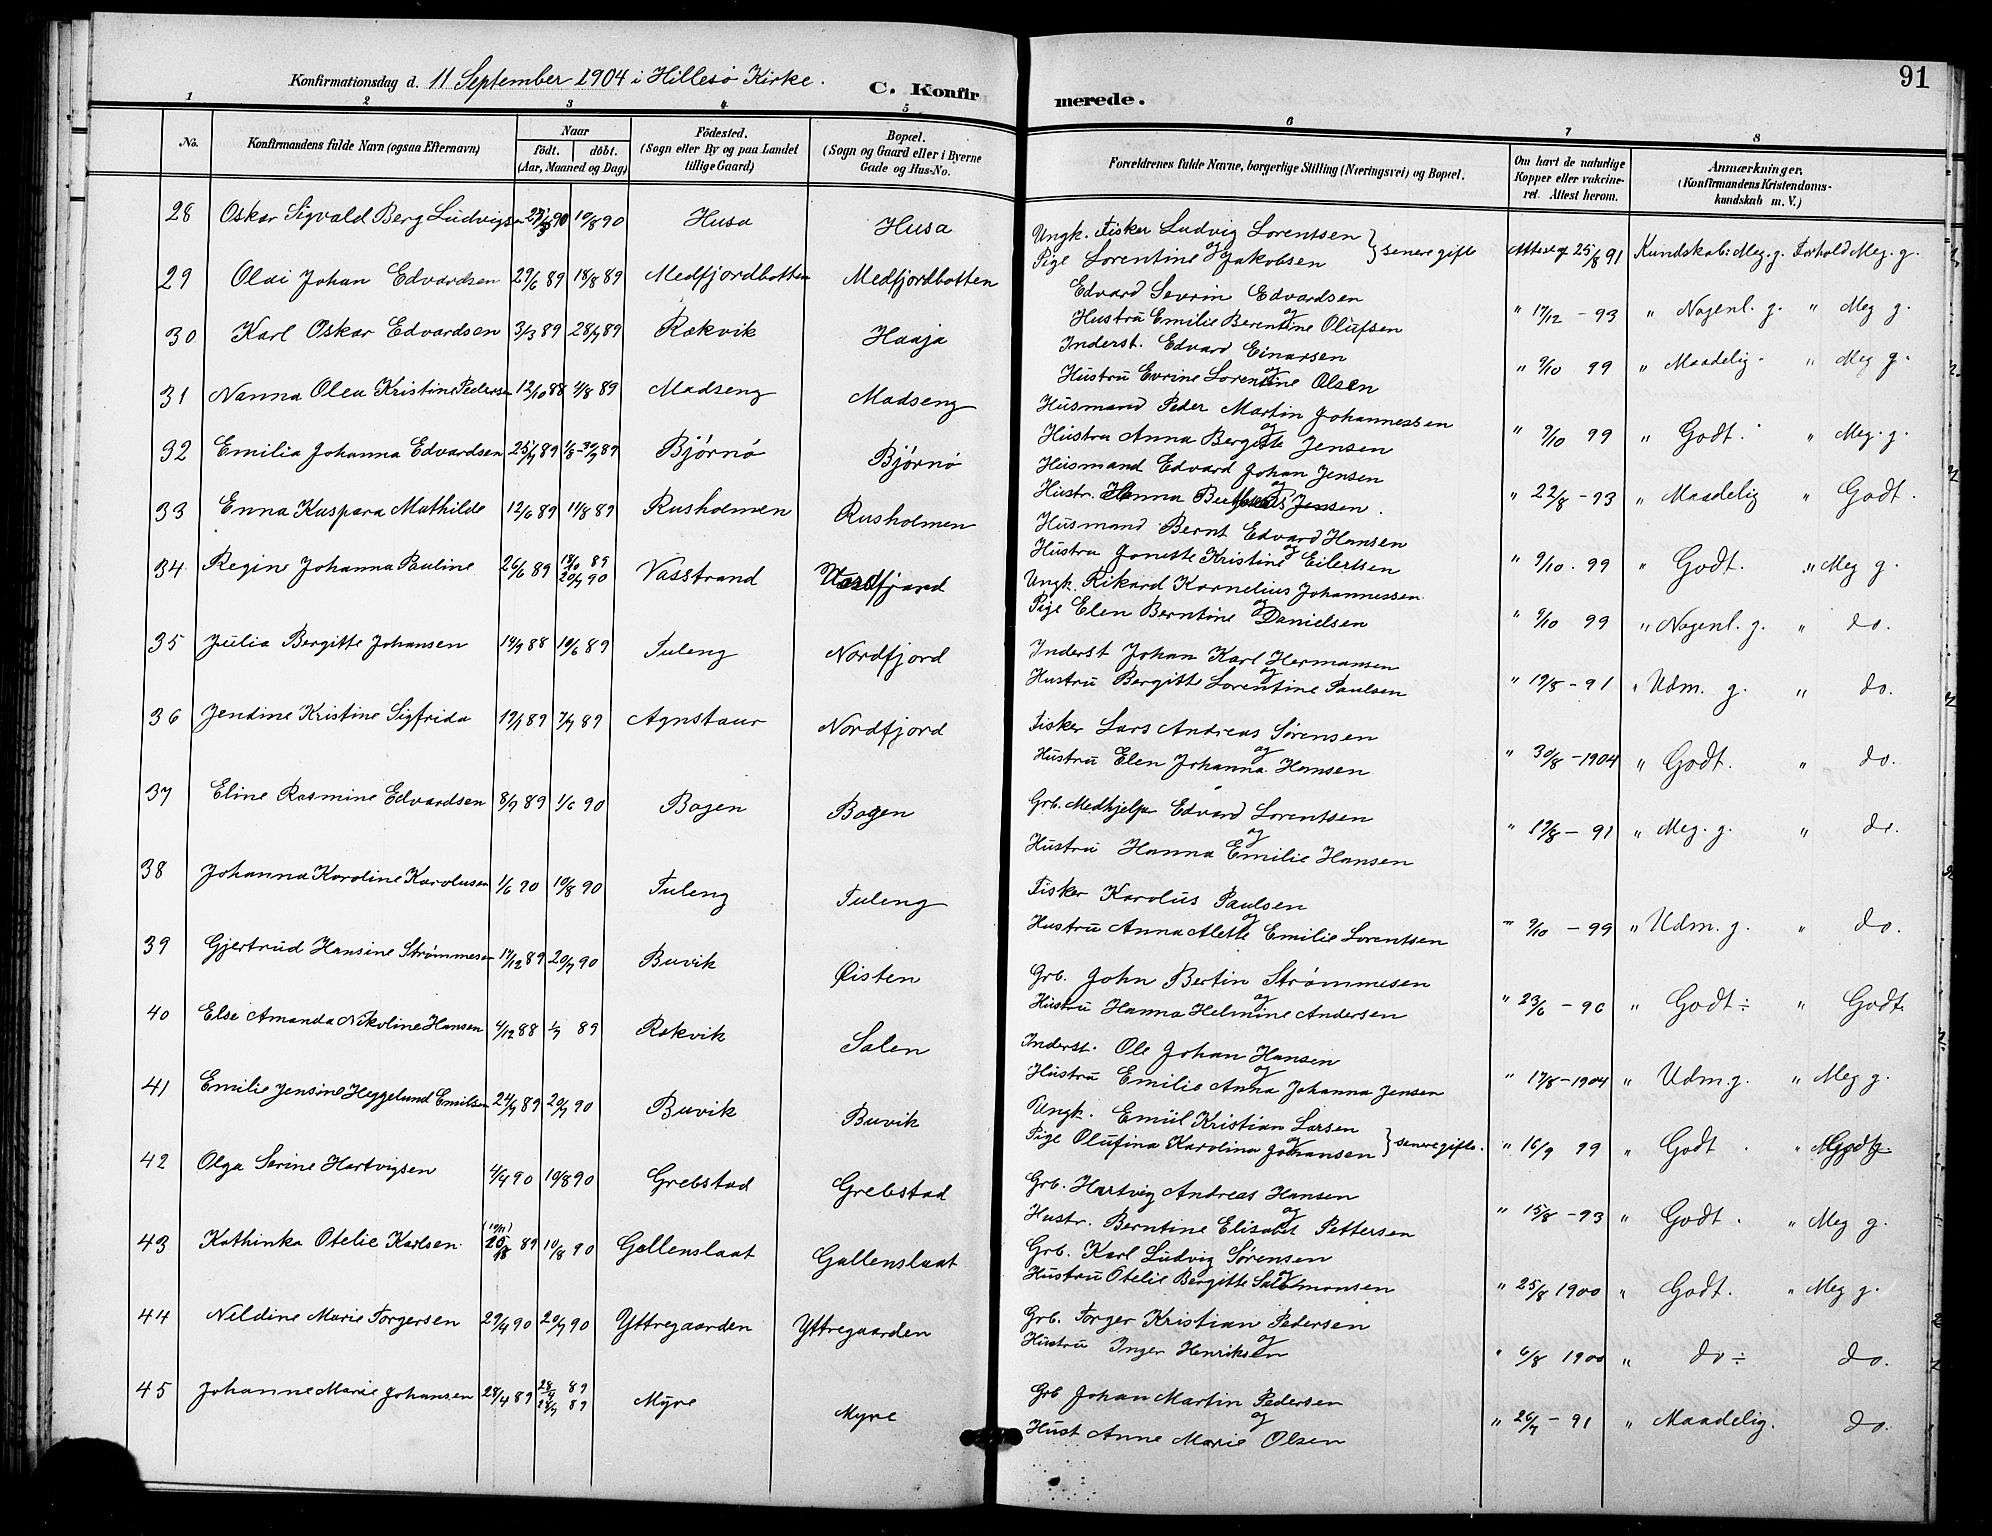 91
Konfirmationsdag d. 11 September 1904 i Hillesø Kirke.
C. Konfirmerede.
1 2 3 4 5 6 7 8
No. Konfirmandens fulde Navn (ogsaa Efternavn) Naar födt. döbt. (Aar, Maaned og Dag) Födested. (Sogn eller By og paa Landet tillige Gaard) Bopæl. (Sogn og Gaard eller i Byerne Gade og Hus-No. Forældrenes fulde Navne, borgerlige Stilling (Næringsvei) og Bopæl. Om havt de naturlige Kopper eller vakcineret. Attest herom. Anmærkninger. (Konfirmandens Kristendomskundskab m. V.)
28 Oskar Sigvald Berg Ludvigsen 90 10/8 90 Husa Husa Ungk. Fisker Ludvig Lorentsen og Pige Lorentine Jakobsen } senere gifte Attest af 25/8 91 Kundskab: Meg. g. Forhold Meg. g.
29 Olai Johan Edvardsen 29/6 89 18/8 89 Medfjordbotten Medfjordbotten Edvard Severin Edvardsen og Hustru Emilie Berentine Olufsen " 17/12 - 93 " Nogenl. g. " Meg g.
30 Karl Oskar Edvardsen 3/3 89 28/7 89 Rækvik Haaja Inderst. Edvard Einarsen og Hustru Evrine Lorentine Olsen " 9/10 99 " Maadelig " Meg g.
31 Nanna Olea Kristine Peders 12/10 88 4/8 89 Madseng Madseng Husmand Peder Martin Johannessen og Hustru Anna Bergitte Jensen " 9/10 99 " Godt. " Meg. g.
32 Emilia Johanna Edvardsen 25/7 89 89 Bjørnø Bjørnø Husmand Edvard Johan Jensen og Hustr. Hanna Jensen. " 22/8 - 93 " Maadelig " Godt.
33 Enna Kaspara Mathilde 12/6 89 11/8 89 Rusholmen Rusholmen Husmand Bernt Edvard Hansen og Hustru Jonette Kristine Eilertsen " 9/10. 99 " Godt. " Meg g.
34 Regine Johanna Pauline 26/6 89 13/10 89 20/7 90 Vasstrand Nordfjord Ungk. Rikard Kornelius Johannessen og Pige Elen Berntine Danielsen " 9/10 99 " Nogenl. g. " do.
35 Julia Bergitte Johansen 14/9 88 10/6 89 Tuleng Nordfjord Inderst Johan Karl Hermansen og Hustru Bergitte Lorentine Paulsen " 19/8 - 91 " Udm. g. " do.
36 Jendine Kristine Sigfrida 19/1 89 7/7 89 Agnstaur Nordfjord Fisker Lars Andreas Sørensen og Hustru Elen Johanna Hansen " 30/8 - 1904 " Godt. " do.
37 Eline Rasmine Edvardsen 8/9 89 1/6 90 Bogen Bogen Grb. Medhjelper Edvard Lorentsen og Hustru Hanna Emilie Hansen " 19/8 - 91 " Meg. g. " do.
38 Johanna Karoline Karolusen 1/6 90 10/8 90 Tuleng Tuleng Fisker Karolus Paulsen og Hustru Anna Alette Emilie Lorentsen " 9/10 - 99 " Udm. g. " do.
39 Gjertrud Hansine Strømmesen 17/12 89 20/7 90 Buvik Øisten Grb. John Bertin Strømmesen og Hustru Hanna Helmine Andersen " 23/6 - 90 " Godt ÷ " Godt.
40 Else Amanda Nikoline Hansen 4/12 88 1/7 89 Rækvik Salen Inderst. Ole Johan Hansen og Hustru Emilie Anna Johanna Jensen " 17/8 - 1904 " Udm g. " Meg g.
41 Emilie Jensine Heggelund Emilsen 24/9 89 20/7 90 Buvik Buvik Ungk. Emiil Kristian Larsen og Pige Olufina Karolina Johansen } senere gifte. " 16/9 99 " Godt. "
42 Olga Serine Hartvigsen 4/4 90 10/8 90 Grebstad Grebstad Grb. Hartvig Andreas Hansen og Hustr. Berntine Elisabet Pettersen " 15/8 - 93 " Godt. " Meg g.
43 Kathinka Otelie Karlsen 89 10/8 90 Gallenslaat Gallenslaat Grb. Karl Ludvig Sørensen og Hustru Otelie Bergitte Salomonsen " 25/8 1900 " Godt. " Meg g.
44 Nildine Marie Torgersen 29/4 90 20/7 90 Yttregaarden Yttregaarden Grb. Torger Kristian Pedersen og Hustru Inger Henriksen " 6/8 1900 " do ÷ do.
45 Johanne Marie Johansen 28/4 89 89 89 Myre Myre Grb Johan Martin Pedersen og Hust Anne Marie Olsen " 26/7 - 91 " Maadelig. do.